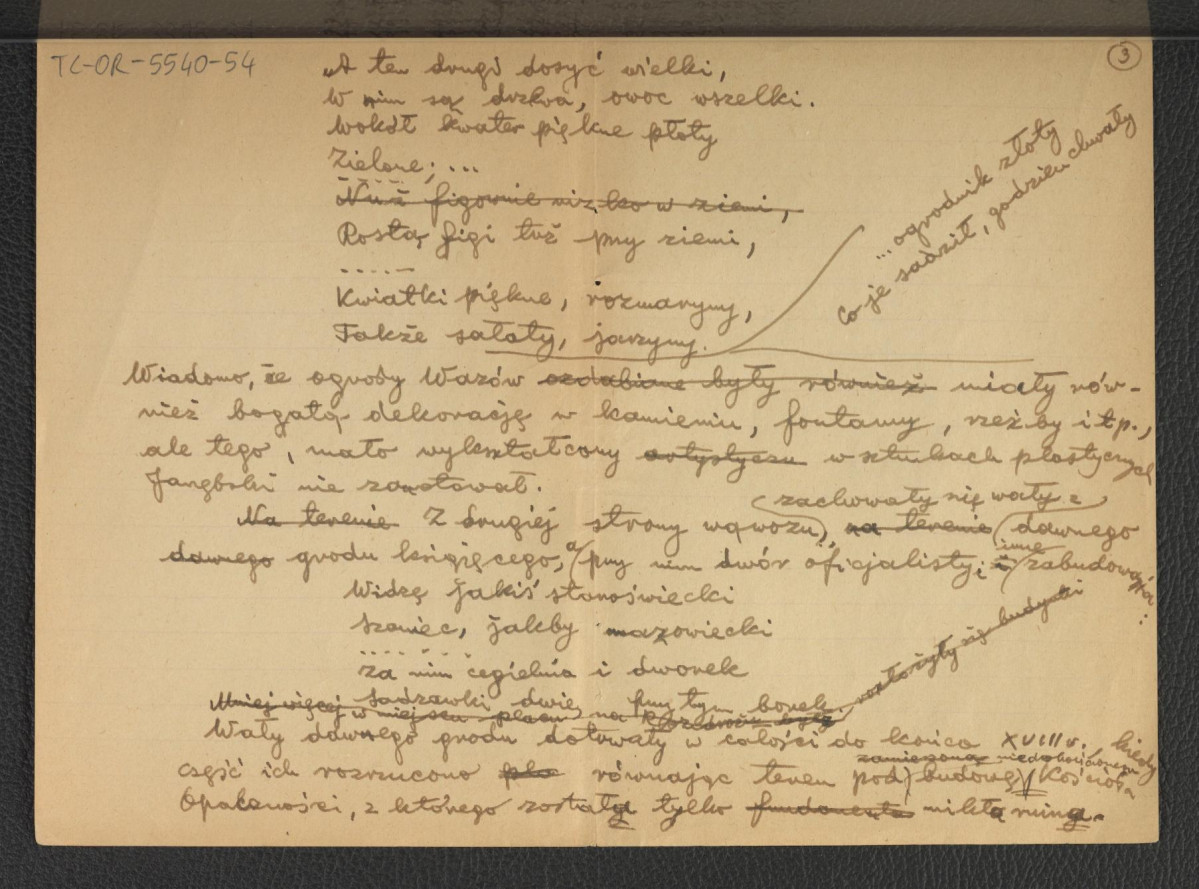 TC-OR-5540-54
3
„A ten drugi dosyć wielki,
W nim są drzewa, owoc wszelki.
Wokół kwater piękne płoty
Zielone; ...
... ogrodnik złoty
Co je sadził, godzien chwały
.....
Nuż figownie nizko w ziemi,
Rostą figi tuż przy ziemi,
.....
Kwiatki piękne, rozmaryny,
Także sałaty, jarzyny.
Wiadomo, że ogrody Wazów ozdabiane były również miały rów-
nież bogatą dekorację w kamieniu, fontanny, rzeźby i t.p.,
ale tego, mało wykształcony artystycznie w sztukach plastycznych
Jarzębski nie zanotował.
zachowały się wały z
Na terenie Z drugiej strony wąwozu, na terenie dawnego
dawnego grodu książęcego, a przy nim dwór oficjalisty; i inne zabudowania:
Widzę jakiś staroświecki
Szaniec, jakby mazowiecki
.......
Za nim cegielnia i dworek
Sadzawki dwie, przy tym borek.
Mniej więcej w miejscu placu na rozłożyły się budynki
Wały dawnego grodu dotrwały w całości do końca XVIII w., kiedy
część ich rozrzucono równając teren pod budowę zamierzoną niedokończonego Kościoła
Opatrzności, z którego zostały tylko fundamenta nikłą ruiną.